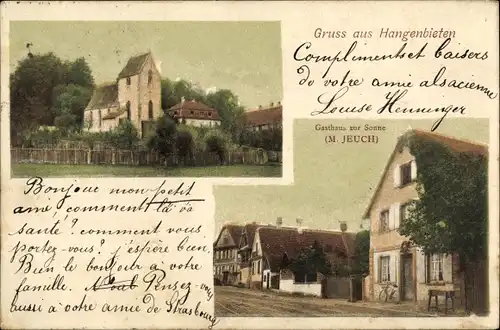 Gruss aus Hangenbieten
Compliments et baisers
de votre amie alsacienne
Louise Henninger
Gasthaus zur Sonne
(M. JEUCH)
Bonjour mon petit
ami, comment la va
santé? comment vous
portez-vous? j'espère bien.
Bien le bonjour à votre
famille. Pensez-vous
aussi à votre amie de Strasbourg